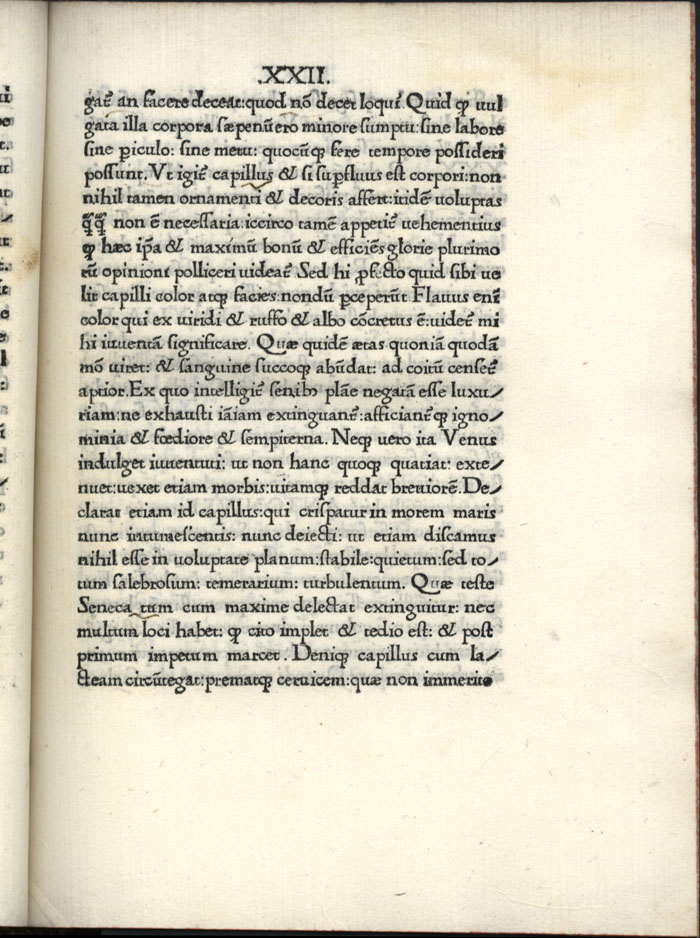 .XXII.
gat᷑ an facere deceat:quod nō decet loqui. Quid ꝙ uul
gata illa corpora sæpenūero minore sumptu: sine labore
sine ꝑiculo: sine metu: quocūqꝫ fere tempore possideri
possunt. Vt igit᷑ capillus & si suꝑfluus est corpori: non
nihil tamen ornamenti & decoris affert: itidē uoluptas
q̄q̄ non ē necessaria: iccirco tamē appetit᷑ uehementius
ꝙ hæc ip̄a & maximū bonū & efficiēs glorie plurimo
rū opinioni polliceri uideat᷑ Sed hi ꝓfecto quid sibi ue
lit capilli color atqꝫ facies: nondū ꝑceperūt. Flauus eni᷑
color qui ex uiridi & ruffo & albo cōcretus ē: uidet᷑ mi
hi iuuentā significare. Quæ quidē ætas quoniā quodā
mō uiret: & sanguine succoqꝫ abūdat: ad coitū censet᷑
aptior. Ex quo intelligit᷑ senibꝰ plāe negatā esse luxu/
riam: ne exhausti iāiam extinguant᷑: afficiant᷑qꝫ igno/
minia & fœdiore & sempiterna. Neqꝫ uero ita Venus
indulget iuuentuti: ut non hanc quoqꝫ quatiat: exte/
nuet: uexet etiam morbis: uitamqꝫ reddat breuiorē. De/
clarat etiam id capillus: qui crispatur in morem maris
nunc intumescentis: nunc deiecti: ut etiam discamus
nihil esse in uoluptate planum: stabile: quietum: sed to/
tum salebrosum: temerarium: turbulentum. Quæ teste
Seneca tum cum maxime delectat extinguitur: nec
multum loci habet: ꝙ cito implet & tedio est: & post
primum impetum marcet. Deniqꝫ capillus cum la/
cteam circūtegat: prematqꝫ ceruicem: quæ non immerito